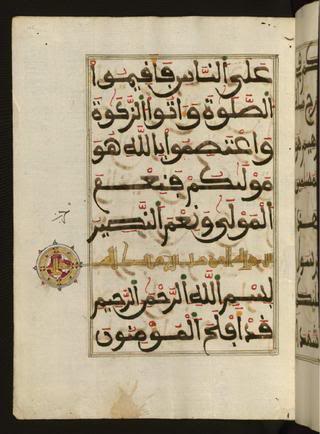 عَلَى ٱلنَّاسِ فَأَقِيمُوا۟
ٱلصَّلَوٰةَ وَءَاتُوا۟ ٱلزَّكَوٰةَ
وَٱعْتَصِمُوا۟ بِٱللَّهِ هُوَ
مَوْلَىٰكُمْ فَنِعْمَ
ٱلْمَوْلَىٰ وَنِعْمَ ٱلنَّصِيرُ
بِسْمِ ٱللَّهِ ٱلرَّحْمَٰنِ ٱلرَّحِيمِ
قَدْ أَفْلَحَ ٱلْمُؤْمِنُونَ